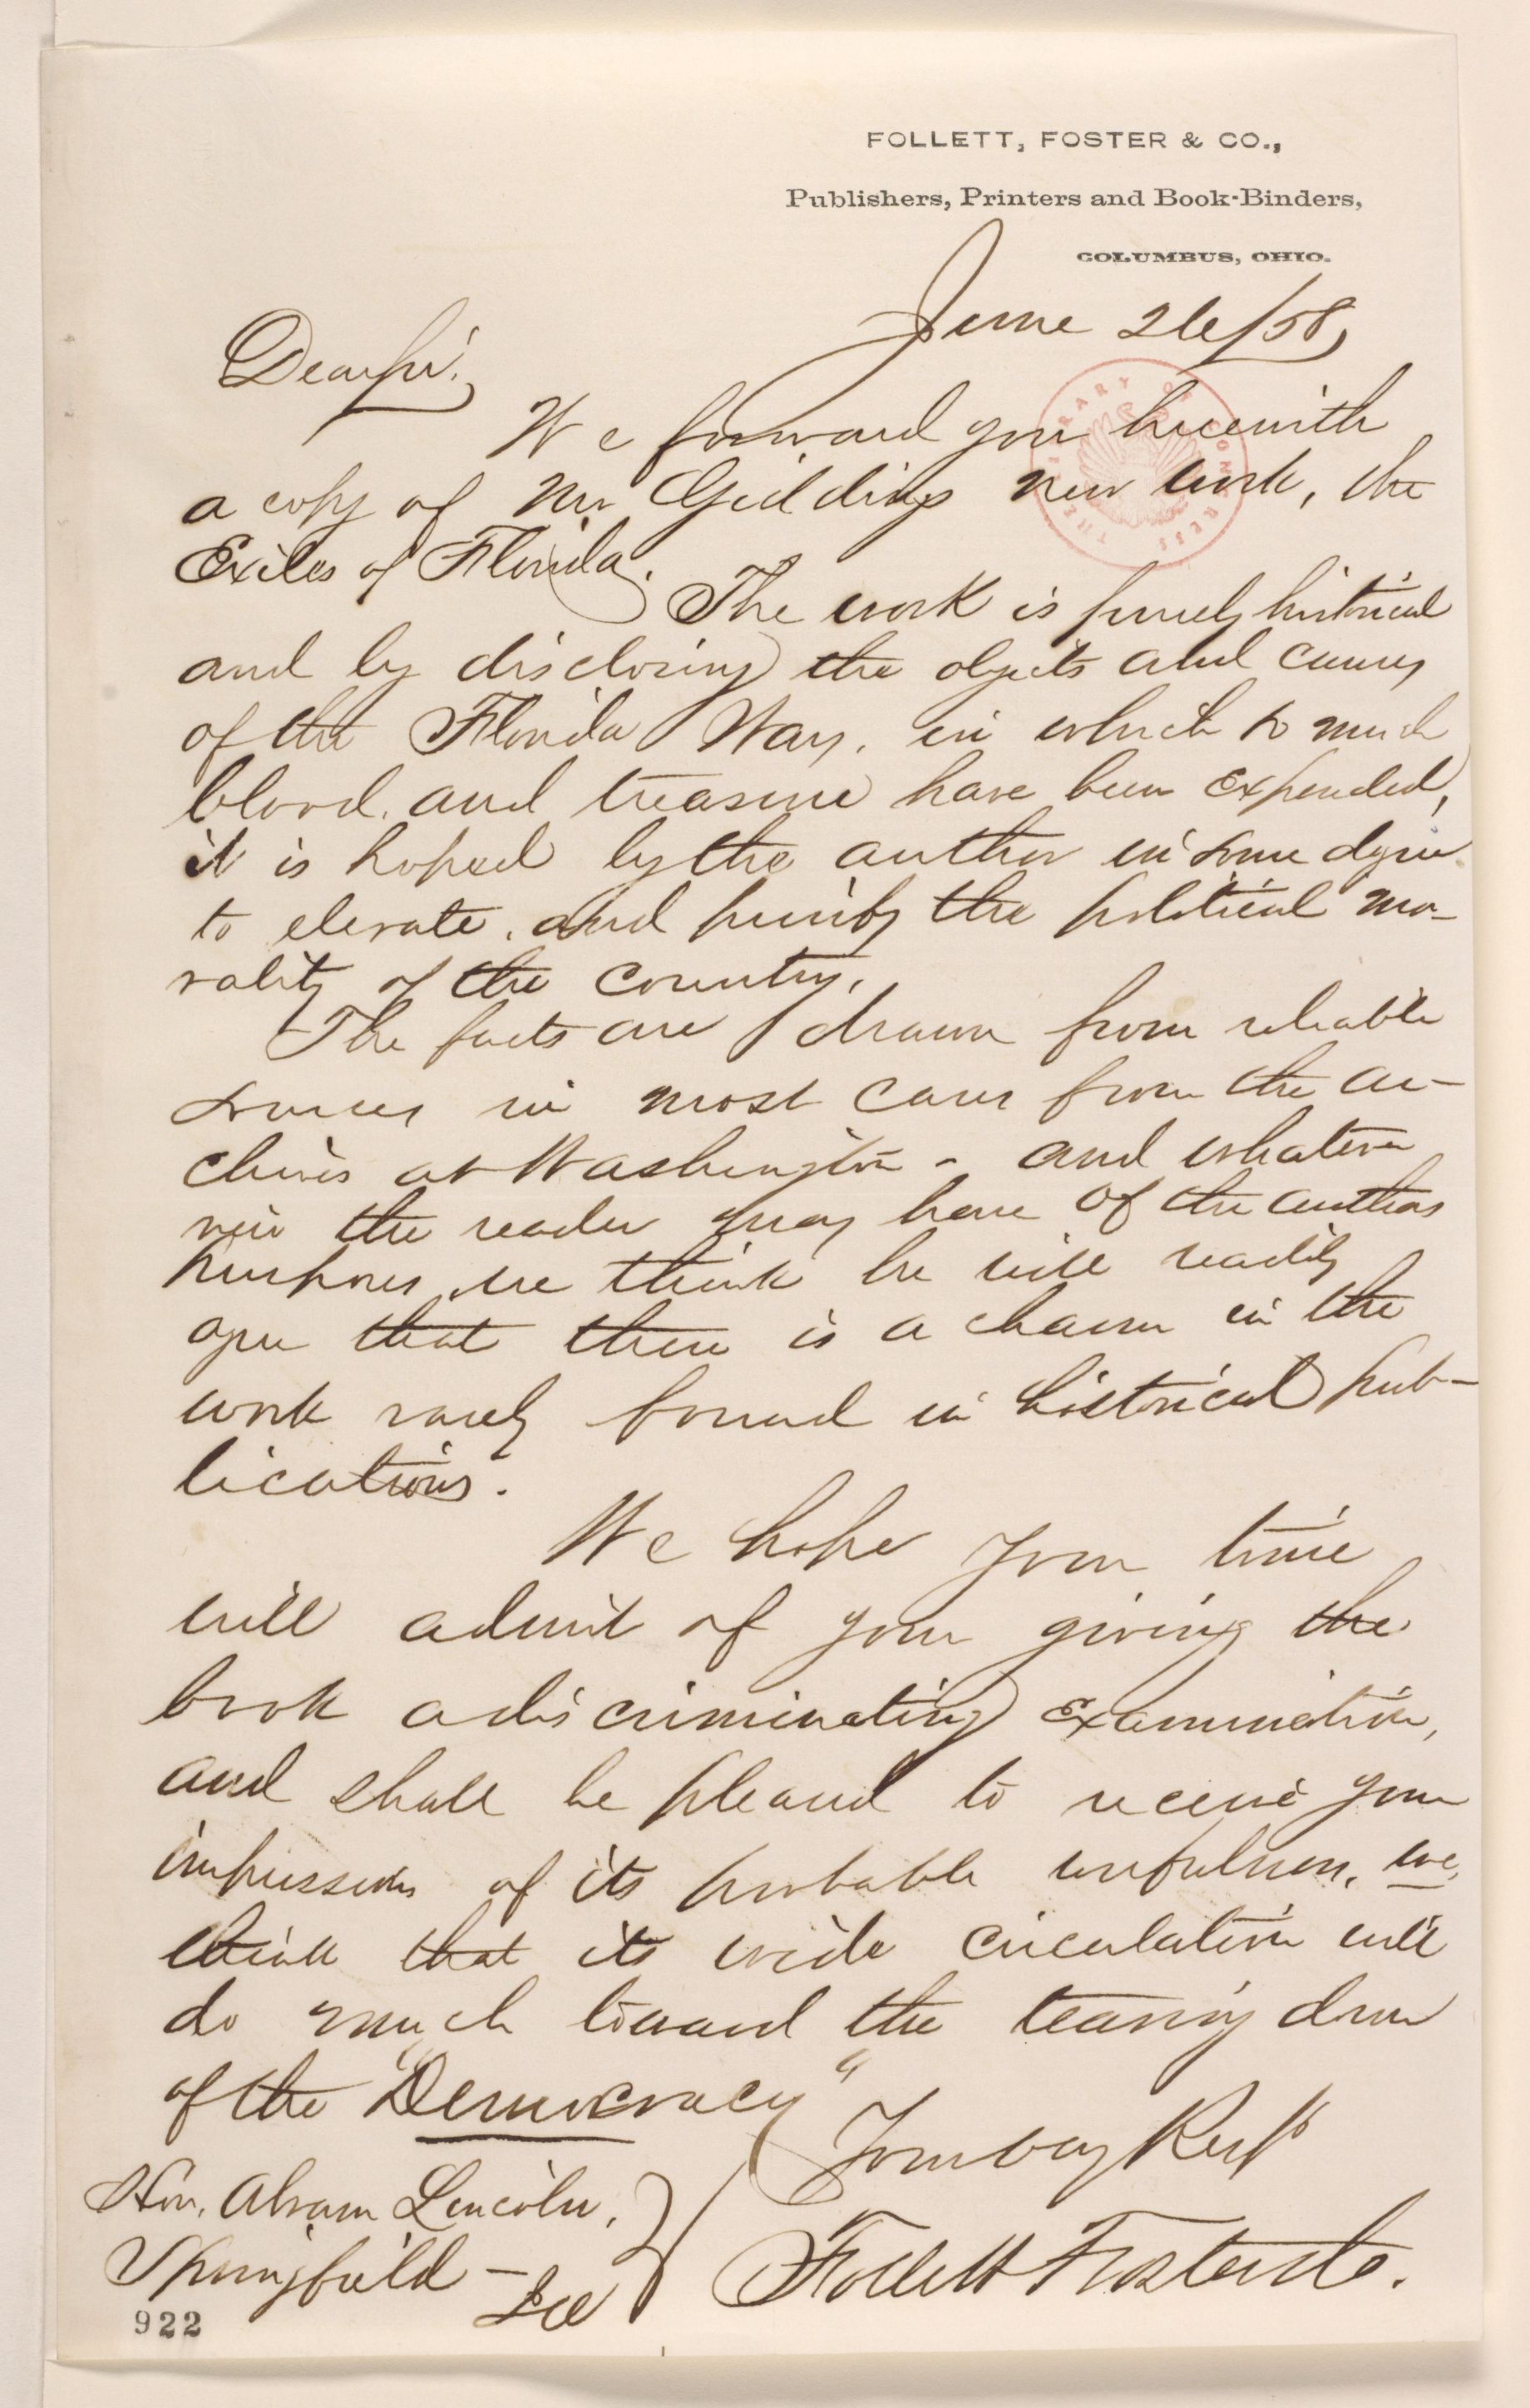 FOLLETT, FOSTER & CO.,
Publishers, Printers and Book-Binders,
COLUMBUS, OHIO.
June 26/58,
Dear Sir.
We forward you herewith
a copy of Mr Giddings new work, the
Exiles of Florida.
The work is purely historical
and by disclosing the objects and causes
of the Florida War, in which so much
blood, and treasure have been expended,
it is hoped by the author in some degree
to elevate, and purify the political mo-
rality of the country.
The facts are drawn from reliable
sources in most cases from the ar-
chives at Washington - and whatever
view the reader may have of the authors
purposes, we think he will readily
agree that there is a charm in the
work rarely found in historical pub-
lications.
We hope your time
will admit of your giving the
book a discriminating examination,
and shall be pleased to receive your
impressions of its probable usefulness, we
think that its wide circulation will
do much toward the tearing down
of the "Democracy"
Yours very Resp
Follett Foster & Co.
Hon. Abram Lincoln,
Springfield —
Ill
922
THE LIBRARY OF CONGRESS